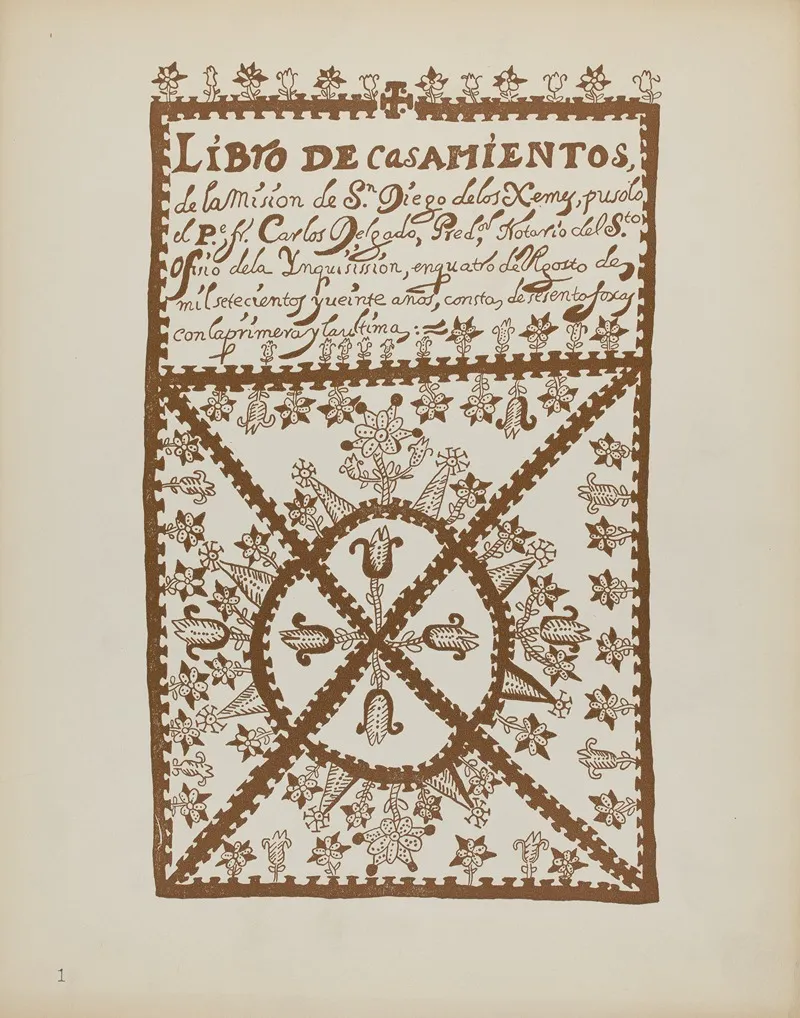 LiBro DE CaSAMIENTOS,
de la Mision de S.n Diego delos Xemes, pusolo
el P.e fr. Carlos Delgado, Pred.or Notario del S.to
Ofisio dela Ynquisission, enquatro de Agosto de
mil setecientos yueinte años, consta, de sesenta foxas
con laprimera y laultima,
1